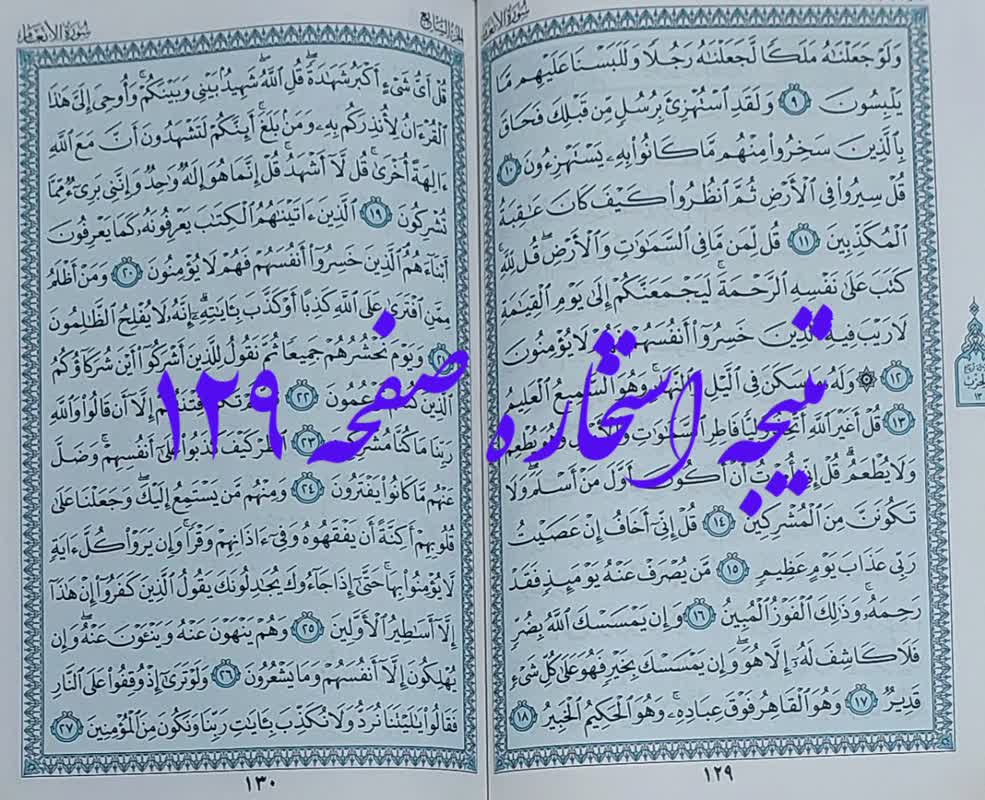 سورة الأنعام
وَلَوْ جَعَلْنَٰهُ مَلَكًا لَّجَعَلْنَٰهُ رَجُلًا وَلَلَبَسْنَا عَلَيْهِم مَّا
يَلْبِسُونَ ٩ وَلَقَدِ ٱسْتُهْزِئَ بِرُسُلٍ مِّن قَبْلِكَ فَحَاقَ
بِٱلَّذِينَ سَخِرُوا۟ مِنْهُم مَّا كَانُوا۟ بِهِۦ يَسْتَهْزِءُونَ ١٠
قُلْ سِيرُوا۟ فِى ٱلْأَرْضِ ثُمَّ ٱنظُرُوا۟ كَيْفَ كَانَ عَٰقِبَةُ
ٱلْمُكَذِّبِينَ ١١ قُل لِّمَن مَّا فِى ٱلسَّمَٰوَٰتِ وَٱلْأَرْضِ ۖ قُل لِّلَّهِ ۚ
كَتَبَ عَلَىٰ نَفْسِهِ ٱلرَّحْمَةَ ۚ لَيَجْمَعَنَّكُمْ إِلَىٰ يَوْمِ ٱلْقِيَٰمَةِ
لَا رَيْبَ فِيهِ ۚ ٱلَّذِينَ خَسِرُوٓا۟ أَنفُسَهُمْ فَهُمْ لَا يُؤْمِنُونَ
١٢ ۞ وَلَهُۥ مَا سَكَنَ فِى ٱلَّيْلِ وَٱلنَّهَارِ ۚ وَهُوَ ٱلسَّمِيعُ ٱلْعَلِيمُ
١٣ قُلْ أَغَيْرَ ٱللَّهِ أَتَّخِذُ وَلِيًّا فَاطِرِ ٱلسَّمَٰوَٰتِ وَٱلْأَرْضِ وَهُوَ يُطْعِمُ
وَلَا يُطْعَمُ ۗ قُلْ إِنِّىٓ أُمِرْتُ أَنْ أَكُونَ أَوَّلَ مَنْ أَسْلَمَ ۖ وَلَا
تَكُونَنَّ مِنَ ٱلْمُشْرِكِينَ ١٤ قُلْ إِنِّىٓ أَخَافُ إِنْ عَصَيْتُ
رَبِّى عَذَابَ يَوْمٍ عَظِيمٍ ١٥ مَّن يُصْرَفْ عَنْهُ يَوْمَئِذٍ فَقَدْ
رَحِمَهُۥ ۚ وَذَٰلِكَ ٱلْفَوْزُ ٱلْمُبِينُ ١٦ وَإِن يَمْسَسْكَ ٱللَّهُ بِضُرٍّ
فَلَا كَاشِفَ لَهُۥٓ إِلَّا هُوَ ۖ وَإِن يَمْسَسْكَ بِخَيْرٍ فَهُوَ عَلَىٰ كُلِّ شَىْءٍ
قَدِيرٌ ١٧ وَهُوَ ٱلْقَاهِرُ فَوْقَ عِبَادِهِۦ ۚ وَهُوَ ٱلْحَكِيمُ ٱلْخَبِيرُ ١٨
١٢٩
الجزء السابع
سورة الأنعام
قُلْ أَىُّ شَىْءٍ أَكْبَرُ شَهَٰدَةً ۖ قُلِ ٱللَّهُ ۖ شَهِيدٌۢ بَيْنِى وَبَيْنَكُمْ ۚ وَأُوحِىَ إِلَىَّ هَٰذَا
ٱلْقُرْءَانُ لِأُنذِرَكُم بِهِۦ وَمَنۢ بَلَغَ ۚ أَئِنَّكُمْ لَتَشْهَدُونَ أَنَّ مَعَ ٱللَّهِ
ءَالِهَةً أُخْرَىٰ ۚ قُل لَّآ أَشْهَدُ ۚ قُلْ إِنَّمَا هُوَ إِلَٰهٌ وَٰحِدٌ وَإِنَّنِى بَرِىٓءٌ مِّمَّا
تُشْرِكُونَ ١٩ ٱلَّذِينَ ءَاتَيْنَٰهُمُ ٱلْكِتَٰبَ يَعْرِفُونَهُۥ كَمَا يَعْرِفُونَ
أَبْنَآءَهُمُ ٱلَّذِينَ خَسِرُوٓا۟ أَنفُسَهُمْ فَهُمْ لَا يُؤْمِنُونَ ٢٠ وَمَنْ أَظْلَمُ
مِمَّنِ ٱفْتَرَىٰ عَلَى ٱللَّهِ كَذِبًا أَوْ كَذَّبَ بِـَٔايَٰتِهِۦٓ ۗ إِنَّهُۥ لَا يُفْلِحُ ٱلظَّٰلِمُونَ
٢١ وَيَوْمَ نَحْشُرُهُمْ جَمِيعًا ثُمَّ نَقُولُ لِلَّذِينَ أَشْرَكُوٓا۟ أَيْنَ شُرَكَآؤُكُمُ
ٱلَّذِينَ كُنتُمْ تَزْعُمُونَ ٢٢ ثُمَّ لَمْ تَكُن فِتْنَتُهُمْ إِلَّآ أَن قَالُوا۟ وَٱللَّهِ
رَبِّنَا مَا كُنَّا مُشْرِكِينَ ٢٣ ٱنظُرْ كَيْفَ كَذَبُوا۟ عَلَىٰٓ أَنفُسِهِمْ ۚ وَضَلَّ
عَنْهُم مَّا كَانُوا۟ يَفْتَرُونَ ٢٤ وَمِنْهُم مَّن يَسْتَمِعُ إِلَيْكَ ۖ وَجَعَلْنَا عَلَىٰ
قُلُوبِهِمْ أَكِنَّةً أَن يَفْقَهُوهُ وَفِىٓ ءَاذَانِهِمْ وَقْرًا ۚ وَإِن يَرَوْا۟ كُلَّ ءَايَةٍ
لَّا يُؤْمِنُوا۟ بِهَا ۚ حَتَّىٰٓ إِذَا جَآءُوكَ يُجَٰدِلُونَكَ يَقُولُ ٱلَّذِينَ كَفَرُوٓا۟ إِنْ هَٰذَآ
إِلَّآ أَسَٰطِيرُ ٱلْأَوَّلِينَ ٢٥ وَهُمْ يَنْهَوْنَ عَنْهُ وَيَنْـَٔوْنَ عَنْهُ ۖ وَإِن
يُهْلِكُونَ إِلَّآ أَنفُسَهُمْ وَمَا يَشْعُرُونَ ٢٦ وَلَوْ تَرَىٰٓ إِذْ وُقِفُوا۟ عَلَى ٱلنَّارِ
فَقَالُوا۟ يَٰلَيْتَنَا نُرَدُّ وَلَا نُكَذِّبَ بِـَٔايَٰتِ رَبِّنَا وَنَكُونَ مِنَ ٱلْمُؤْمِنِينَ ٢٧
١٣٠
نتیجه استخاره صفحه ۱۲۹